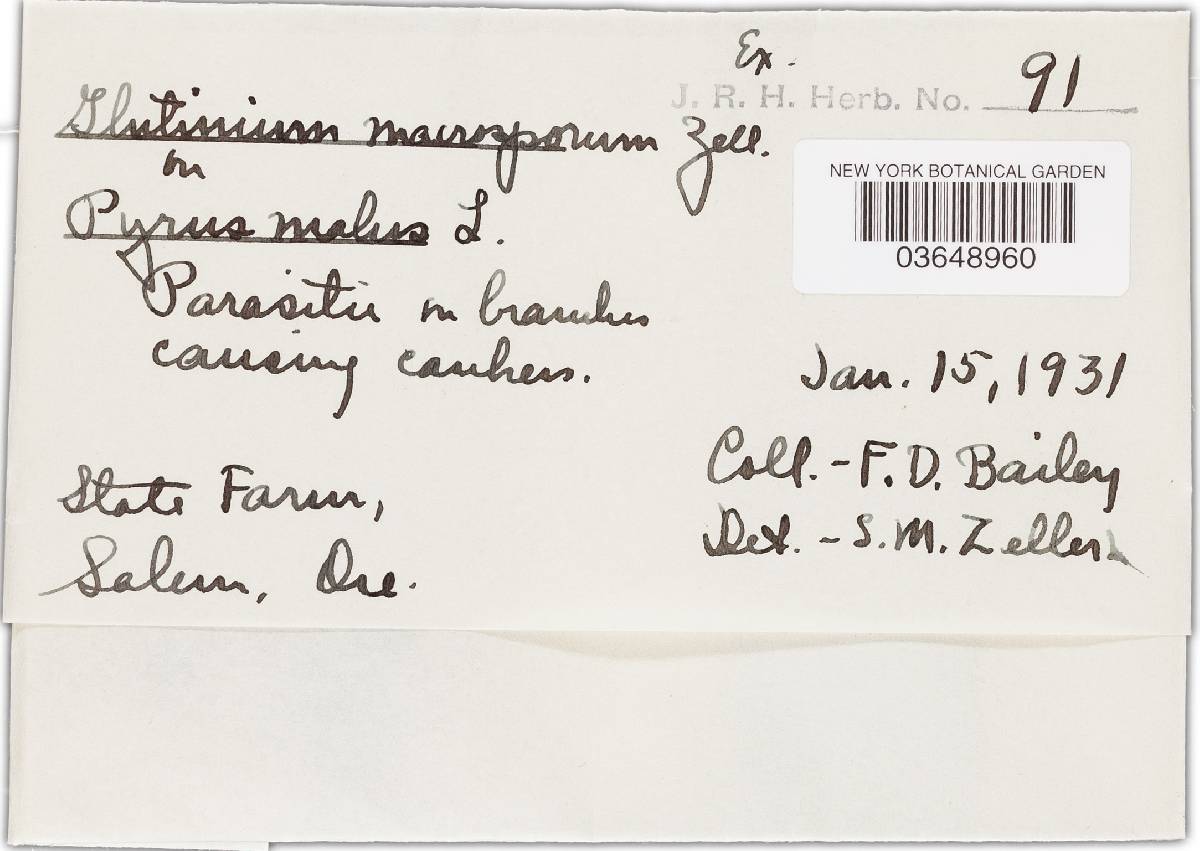 Ex.
J. R. H. Herb. No. 91
Glutinium macrosporum Zell.
on
Pyrus malus L.
Parasitic on branches
causing cankers.
NEW YORK BOTANICAL GARDEN
03648960
Jan. 15, 1931
Coll. - F. D. Bailey
Det. - S. M. Zeller
State Farm,
Salem, Ore.